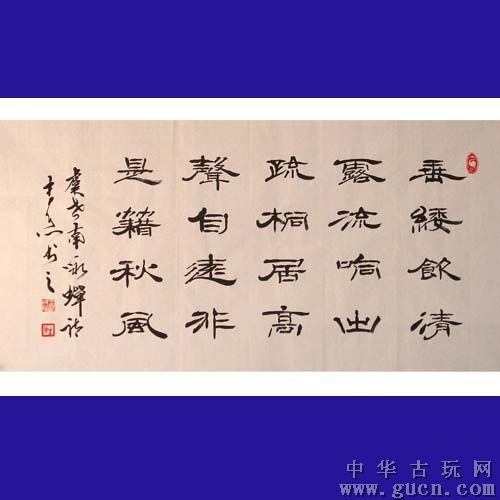 垂緌飲清
露流响出
疏桐居高
聲自遠非
是籍秋风
虞世南詠蟬诗
书之
中华古玩网
www.gucn.com